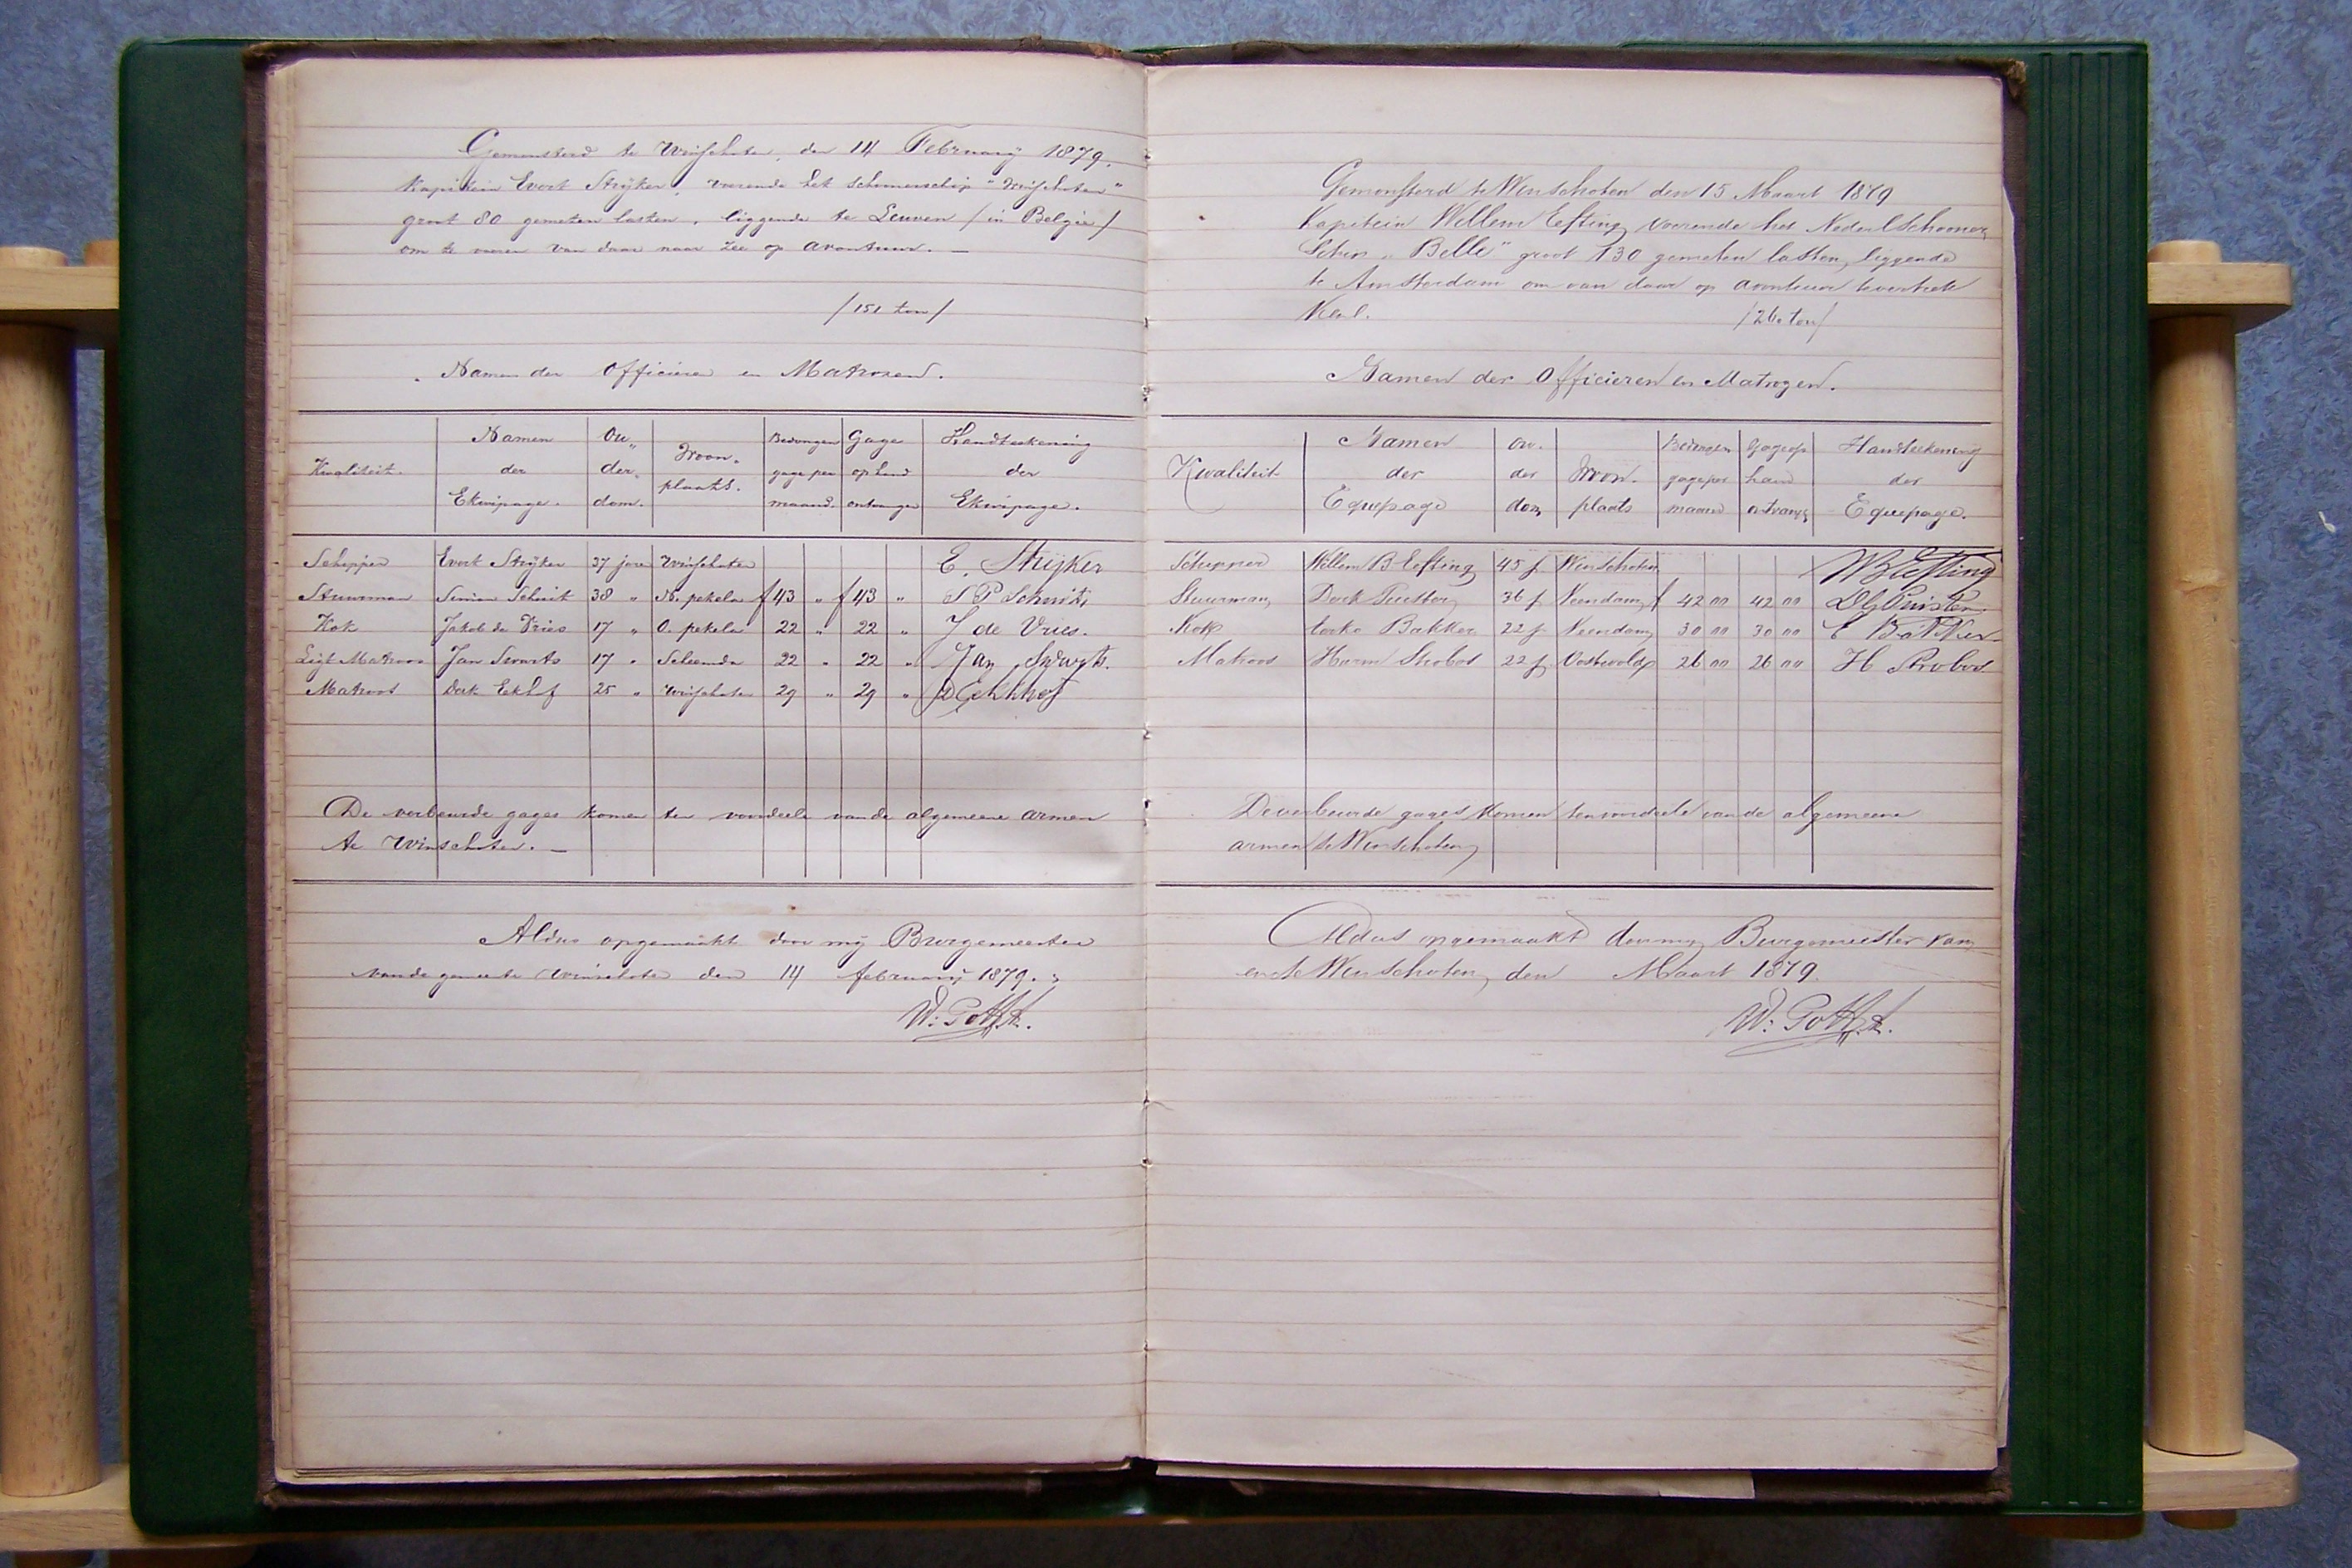 Gemonsterd te Winschoten, den 14 February 1879.
Kapitein Evert Strijker, voerende het schoenerschip "Winschoten"
groot 80 gemeten lasten, liggende te Leuven / in Belgie /
om te varen van daar naar zee op avontuur. —
/ 151 ton /
Namen der Officieren en Matrozen.
Kwaliteit. Namen der Ekwipage. Ou„ der„ dom. Woon„ plaats. Bedongen gage per maand. Gage op hand ontvangen Handteekening der Ekwipage.
Schipper Evert Strijker 37 jaren Winschoten E. Strijker
Stuurman Simon Schuit 38 „ N. pekela f 43 „ f 43 „ S P
Kok Jakob de Vries 17 „ O. pekela 22 „ 22 „ J de Vries.
Ligt Matroos Jan Swarts 17 „ Scheemda 22 „ 22 „ Jan Swarts.
Matroos Derk Eekhof 25 „ Winschoten 29 „ 29 „ D Eekhhof
De verbeurde gages komen ten voordeele van de algemeene armen
te Winschoten. —
Aldus opgemaakt door mij Burgemeester
van de gemeente Winschoten den 14 february 1879.
W:
Gemonsterd te Winschoten den 15 Maart 1879
Kapitein Willem Eefting voerende het Nederl Schoener
Schip „Belle" groot 130 gemeten lasten, liggende
te Amsterdam om van daar op avontuur te vertrek
Ken.
/ 260 ton /
Namen der Officieren en Matrozen.
Kwaliteit Namen der Equipage Ou. der dom Woon. plaats Bedongen gage per maand Gage op hand ontvangen Handteekening der Equipage.
Schipper Willem B Eefting 45 j. Winschoten WBEefting
Stuurman Derk Puister 36 j Veendam f 42 00 42 00 DG Puister.
Kok Eerke Bakker 22 j Veendam 30 00 30 00 E Bakker
Matroos Harm Strobos 22 j. Oostwold 26 00 26 00 H Strobos
De verbeurde gages komen ten voordeele van de algemeene
armen te Winschoten
Aldus opgemaakt door mij Burgemeester van
en te Winschoten, den Maart 1879.
W: